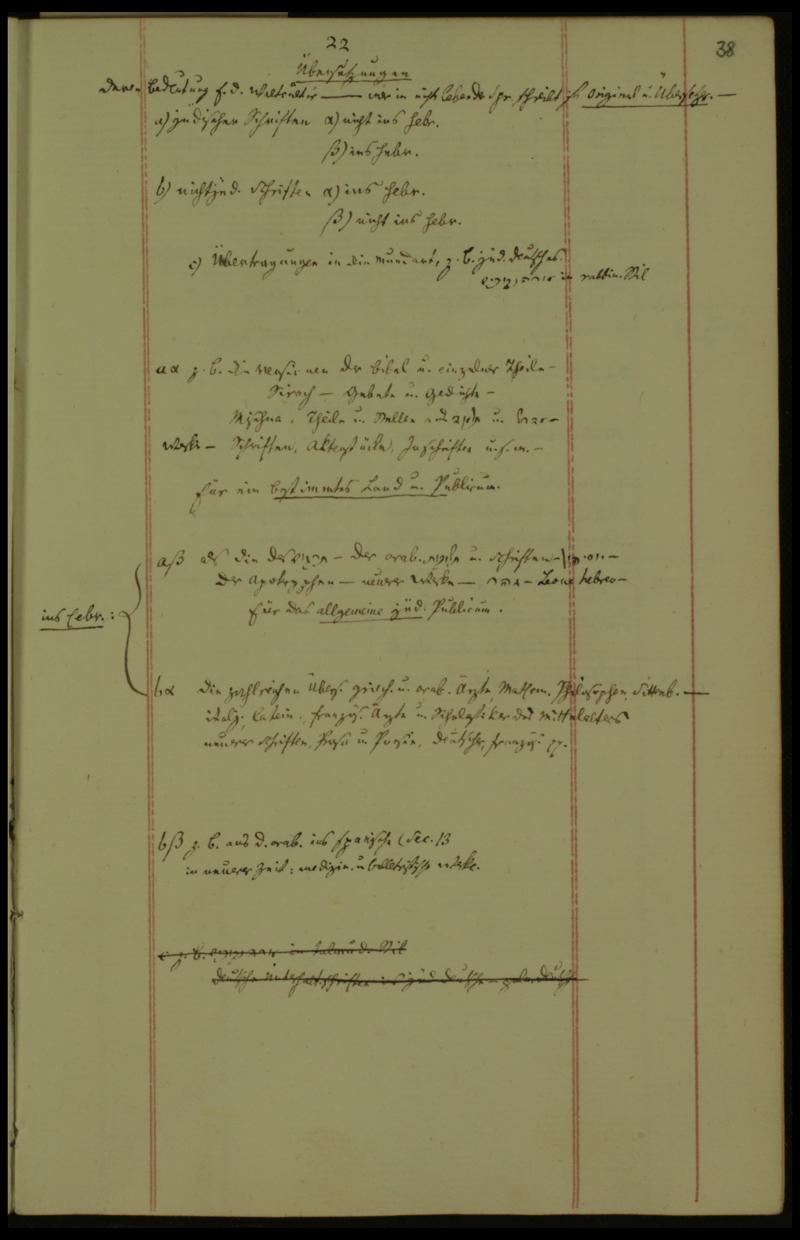 22
38
Übersetzungen
deren Bedeutung f. d. Weltcultur — wer in nicht lebende Spr. schreibt ist Original u. Übersetzer. —
a) jüdischer Schriften α) nicht ins hebr.
β) ins hebr.
b) nichtjüd. Schriften α) ins hebr.
β) nicht ins hebr.
c) Übertragungen in die Mundart, z. B. jüd. deutsches.
in rabbin. Stil
aα z. B. die Versionen der Bibel u. einzelner Theile —
Sirach — Gebete u. Gedichte —
Mischna, Theile u. Stellen aus u.
Werke — Schriften, Aktenstücke, Inschriften u.s.w. —
für ein bestimmtes Land u. Publicum.
aβ als die des — der arab. u. Schriften —
der Apokryphen — neuerer Werke — Leone hebreo —
für das allgemeine jüd. Publicum.
ins hebr.:
bα die zahlreichen Übers. griech. u. arab. Ärzte, Mathem. Philosophen, Sittenb. —
italj. latein. französ. Ärzte u. Scholastiker des Mittelalters
neuerer Schriften, Prosa u. Poesie, deutsche, französ. pp.
bβ z. B. aus d. arab. ins spanische (Sec. 13
in neuerer Zeit: medizin. u. belletristische Werke.
c z. B. in talmud. Stil
deutsche Unterhalt.schriften ins jüd. deutsche